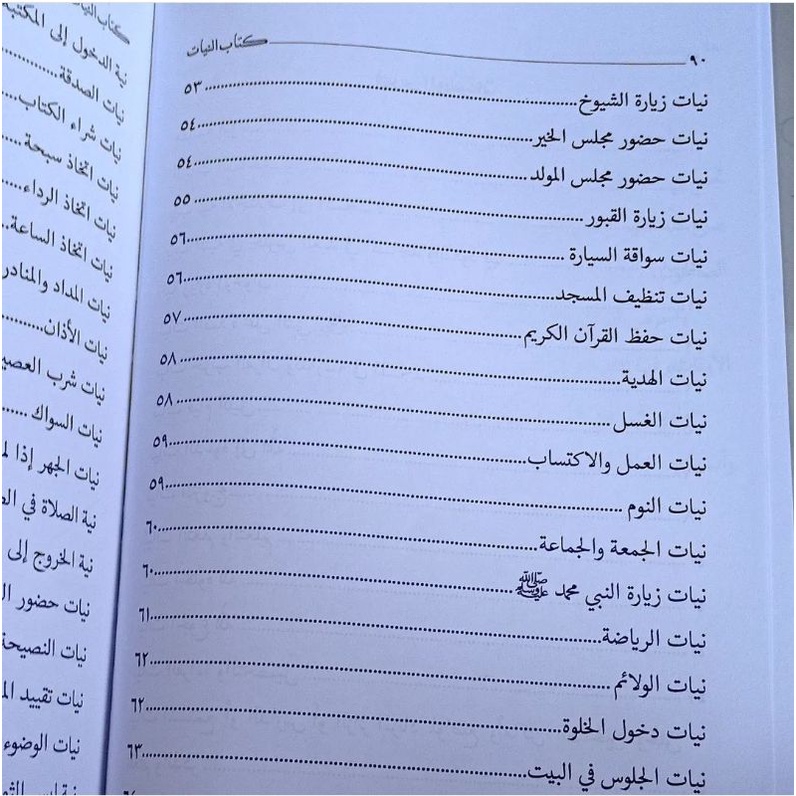 ٩٠ كتاب النيات
نيات زيارة الشيوخ ٥٣
نيات حضور مجلس الخير ٥٤
نيات حضور مجلس المولد ٥٤
نيات زيارة القبور ٥٥
نيات سواقة السيارة ٥٦
نيات تنظيف المسجد ٥٦
نيات حفظ القرآن الكريم ٥٧
نيات الهدية ٥٨
نيات الغسل ٥٨
نيات العمل والاكتساب ٥٩
نيات النوم ٥٩
نيات الجمعة والجماعة ٦٠
نيات زيارة النبي محمد ﷺ ٦٠
نيات الرياضة ٦١
نيات الولائم ٦٢
نيات دخول الخلوة ٦٢
نيات الجلوس في البيت ٦٣
كتاب النيات
نية الدخول إلى المكتبة
نيات الصدقة
نيات شراء الكتاب
نيات اتخاذ سبحة
نيات اتخاذ الرداء
نيات اتخاذ الساعة
نيات المداد والمنادر
نيات الأذان
نيات شرب العصير
نيات السواك
نيات الجهر إذا
نية الصلاة في
نية الخروج إلى
نيات حضور
نيات النصيحة
نيات تقييد
نيات الوضوء